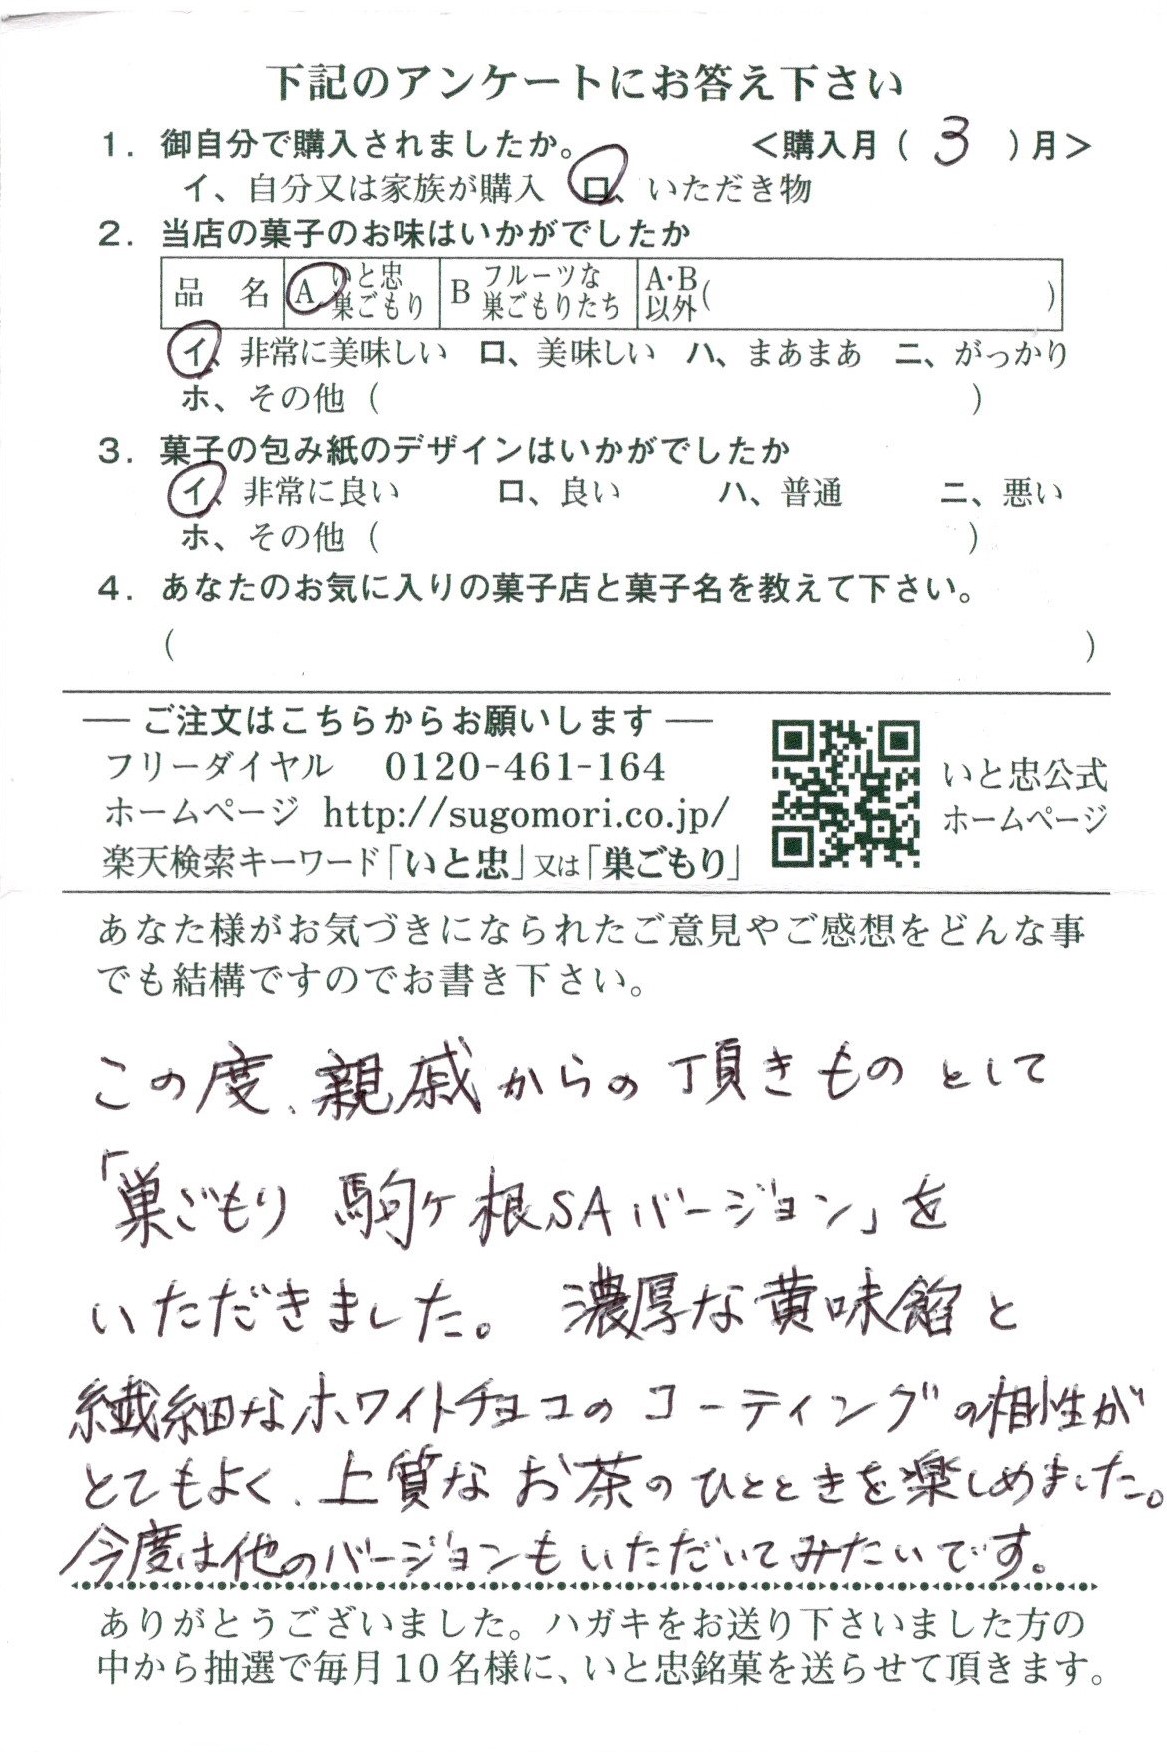 下記のアンケートにお答え下さい
1. 御自分で購入されましたか。 ＜購入月( 3 )月＞
イ、自分又は家族が購入 ロ、いただき物
2. 当店の菓子のお味はいかがでしたか
品 名 A いと忠巣ごもり B フルーツな巣ごもりたち A・B以外( )
イ、非常に美味しい ロ、美味しい ハ、まあまあ ニ、がっかり
ホ、その他 ( )
3. 菓子の包み紙のデザインはいかがでしたか
イ、非常に良い ロ、良い ハ、普通 ニ、悪い
ホ、その他 ( )
4. あなたのお気に入りの菓子店と菓子名を教えて下さい。
( )
― ご注文はこちらからお願いします ―
フリーダイヤル 0120-461-164
ホームページ http://sugomori.co.jp/
楽天検索キーワード「いと忠」又は「巣ごもり」
いと忠公式
ホームページ
あなた様がお気づきになられたご意見やご感想をどんな事
でも結構ですのでお書き下さい。
この度、親戚からの頂きものとして
「巣ごもり 駒ケ根SAバージョン」を
いただきました。 濃厚な黄味餡と
繊細なホワイトチョコのコーティングの相性が
とてもよく、上質なお茶のひとときを楽しめました。
今度は他のバージョンもいただいてみたいです。
ありがとうございました。ハガキをお送り下さいました方の
中から抽選で毎月10名様に、いと忠銘菓を送らせて頂きます。